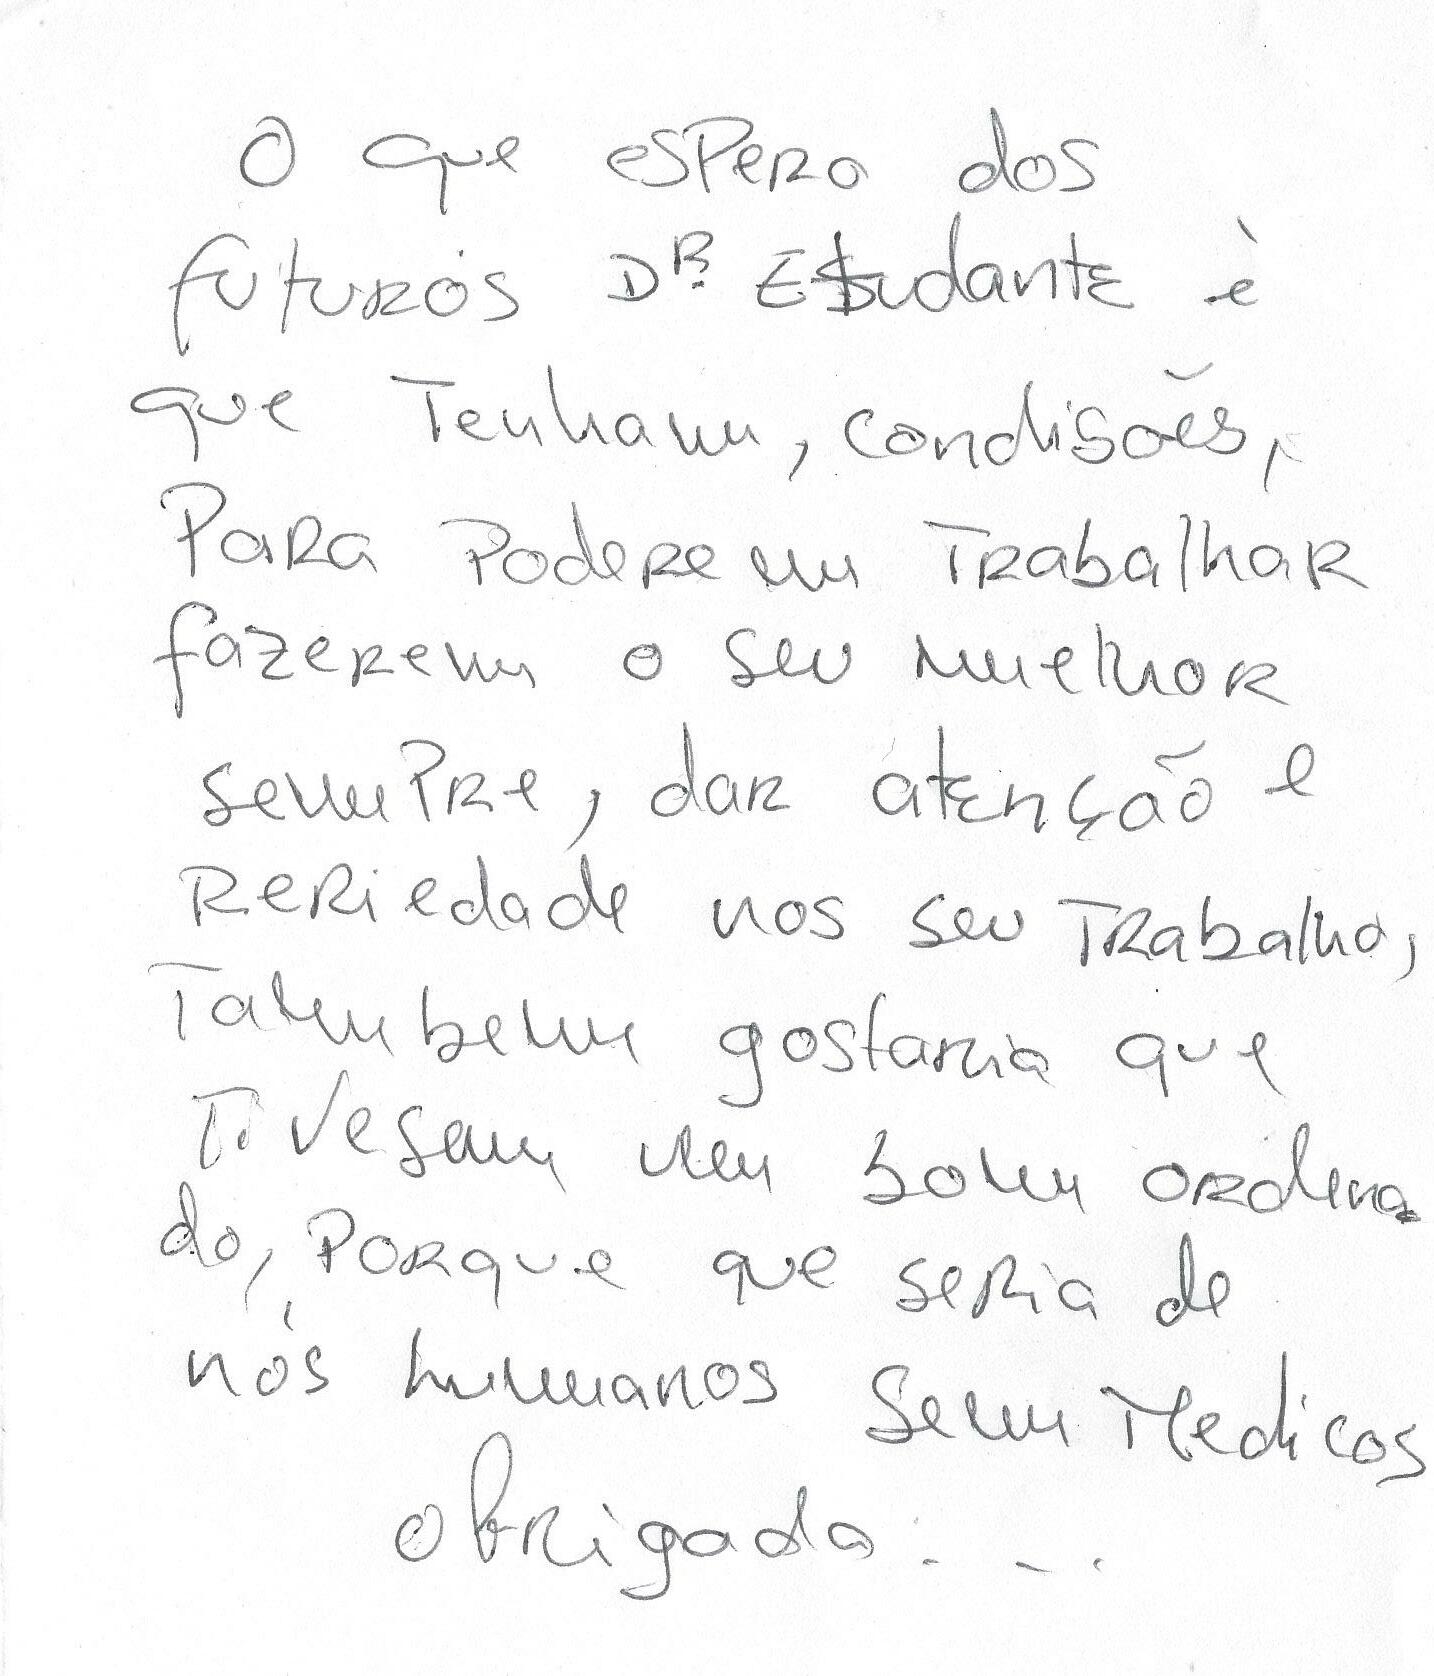 O que espera dos
futuros Dr. Estudante è
que Tenham, condisões,
Para Poderem Trabalhar
fazerem o seu melhor
sempre, dar atenção e
Reriedade nos seu Trabalho,
Tambem gostaria que
Tivesam um bom ordena
do, Porque que seria de
nós humanos sem Medicos
obrigado...